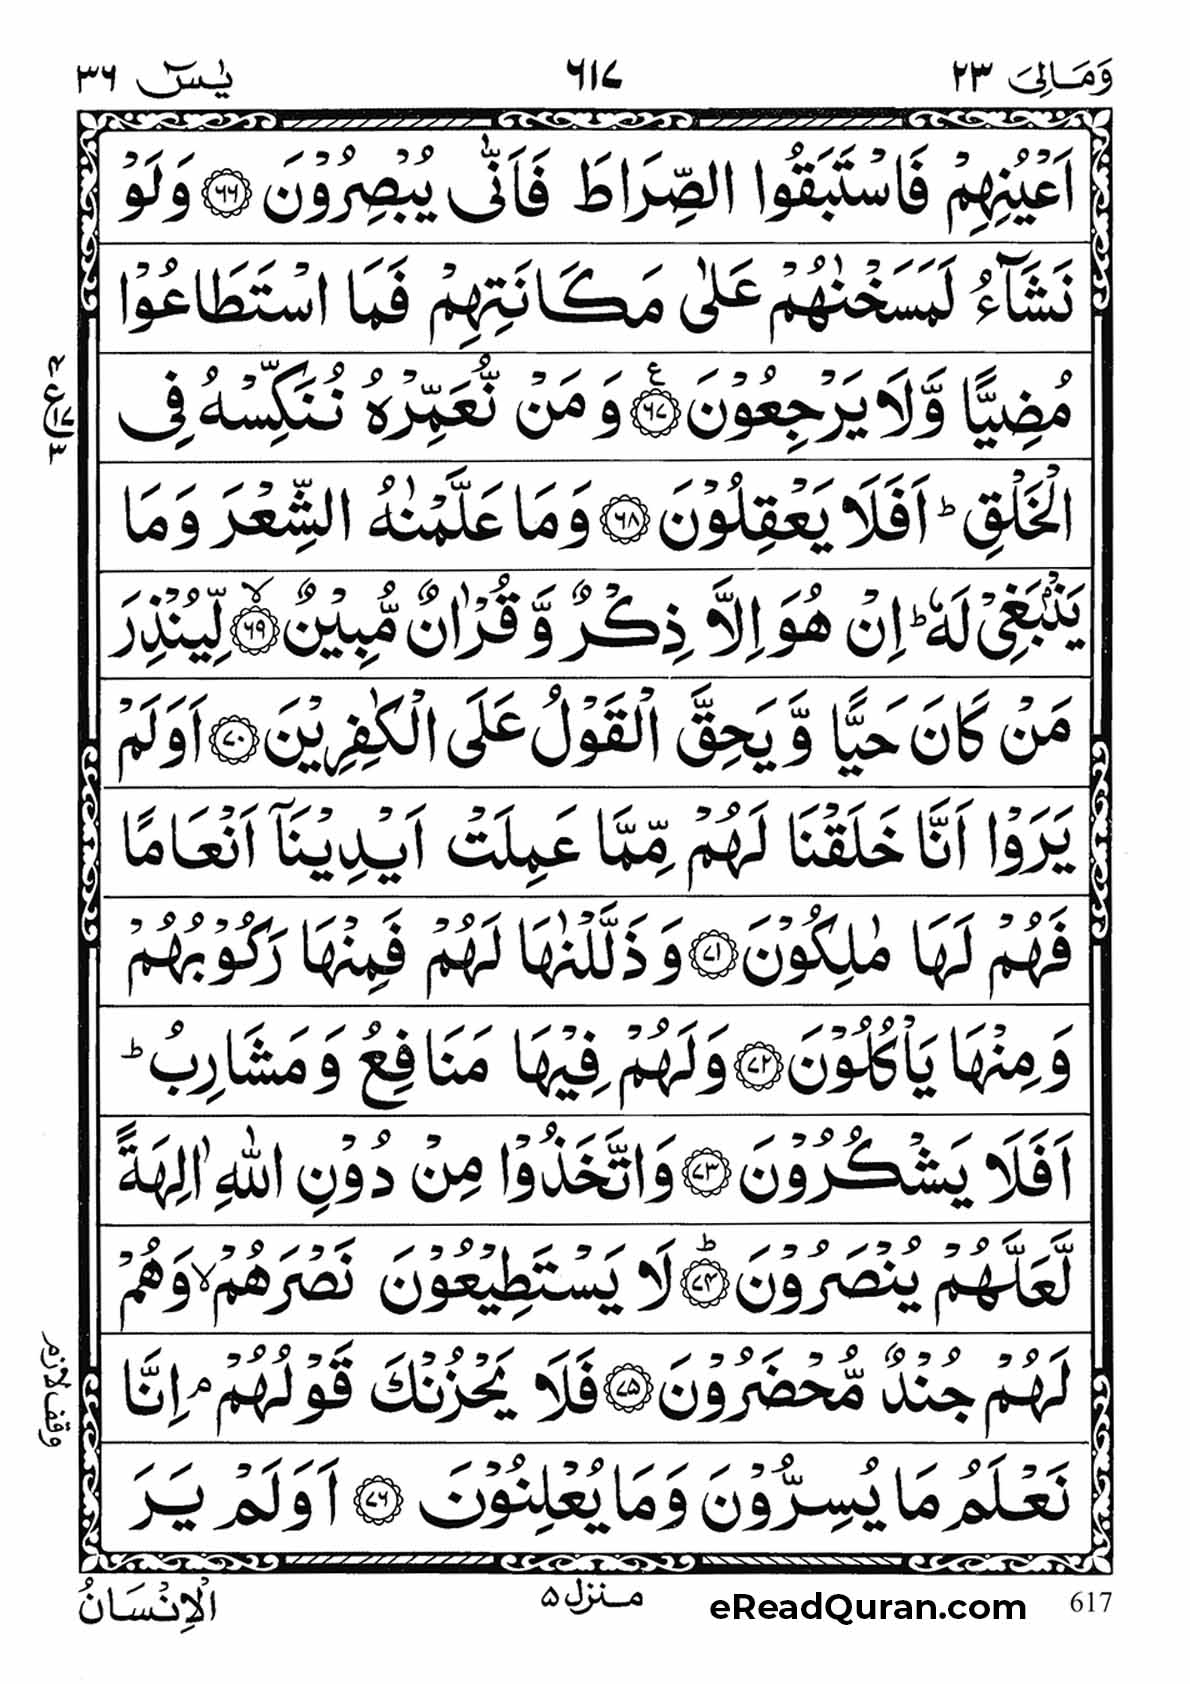 وَمَالِیَ ٢٣ ٦١٧ يٰسٓ ٣٦
اَعْيُنِهِمْ فَاسْتَبَقُوا الصِّرَاطَ فَاَنّٰى يُبْصِرُوْنَ ﴿٦٦﴾ وَلَوْ
نَشَآءُ لَمَسَخْنٰهُمْ عَلٰى مَكَانَتِهِمْ فَمَا اسْتَطَاعُوْا
مُضِيًّا وَّلَا يَرْجِعُوْنَ ﴿٦٧﴾ ع وَمَنْ نُّعَمِّرْهُ نُنَكِّسْهُ فِى
الْخَلْقِ ؕ اَفَلَا يَعْقِلُوْنَ ﴿٦٨﴾ وَمَا عَلَّمْنٰهُ الشِّعْرَ وَمَا
يَنْۢبَغِىْ لَهٗ ؕ اِنْ هُوَ اِلَّا ذِكْرٌ وَّ قُرْاٰنٌ مُّبِيْنٌ ﴿٦٩﴾ ۙ لِّيُنْذِرَ
مَنْ كَانَ حَيًّا وَّ يَحِقَّ الْقَوْلُ عَلَى الْكٰفِرِيْنَ ﴿٧٠﴾ اَوَلَمْ
يَرَوْا اَنَّا خَلَقْنَا لَهُمْ مِّمَّا عَمِلَتْ اَيْدِيْنَاۤ اَنْعَامًا
فَهُمْ لَهَا مٰلِكُوْنَ ﴿٧١﴾ وَذَلَّلْنٰهَا لَهُمْ فَمِنْهَا رَكُوْبُهُمْ
وَمِنْهَا يَاْكُلُوْنَ ﴿٧٢﴾ وَلَهُمْ فِيْهَا مَنَافِعُ وَمَشَارِبُ ؕ
اَفَلَا يَشْكُرُوْنَ ﴿٧٣﴾ وَاتَّخَذُوْا مِنْ دُوْنِ اللّٰهِ اٰلِهَةً
لَّعَلَّهُمْ يُنْصَرُوْنَ ﴿٧٤﴾ ؕ لَا يَسْتَطِيْعُوْنَ نَصْرَهُمْ ۙ وَهُمْ
لَهُمْ جُنْدٌ مُّحْضَرُوْنَ ﴿٧٥﴾ فَلَا يَحْزُنْكَ قَوْلُهُمْ ۘ اِنَّا
وقف لازم
نَعْلَمُ مَا يُسِرُّوْنَ وَمَا يُعْلِنُوْنَ ﴿٧٦﴾ اَوَلَمْ يَرَ
الْاِنْسَانُ منزل ٥ eReadQuran.com 617